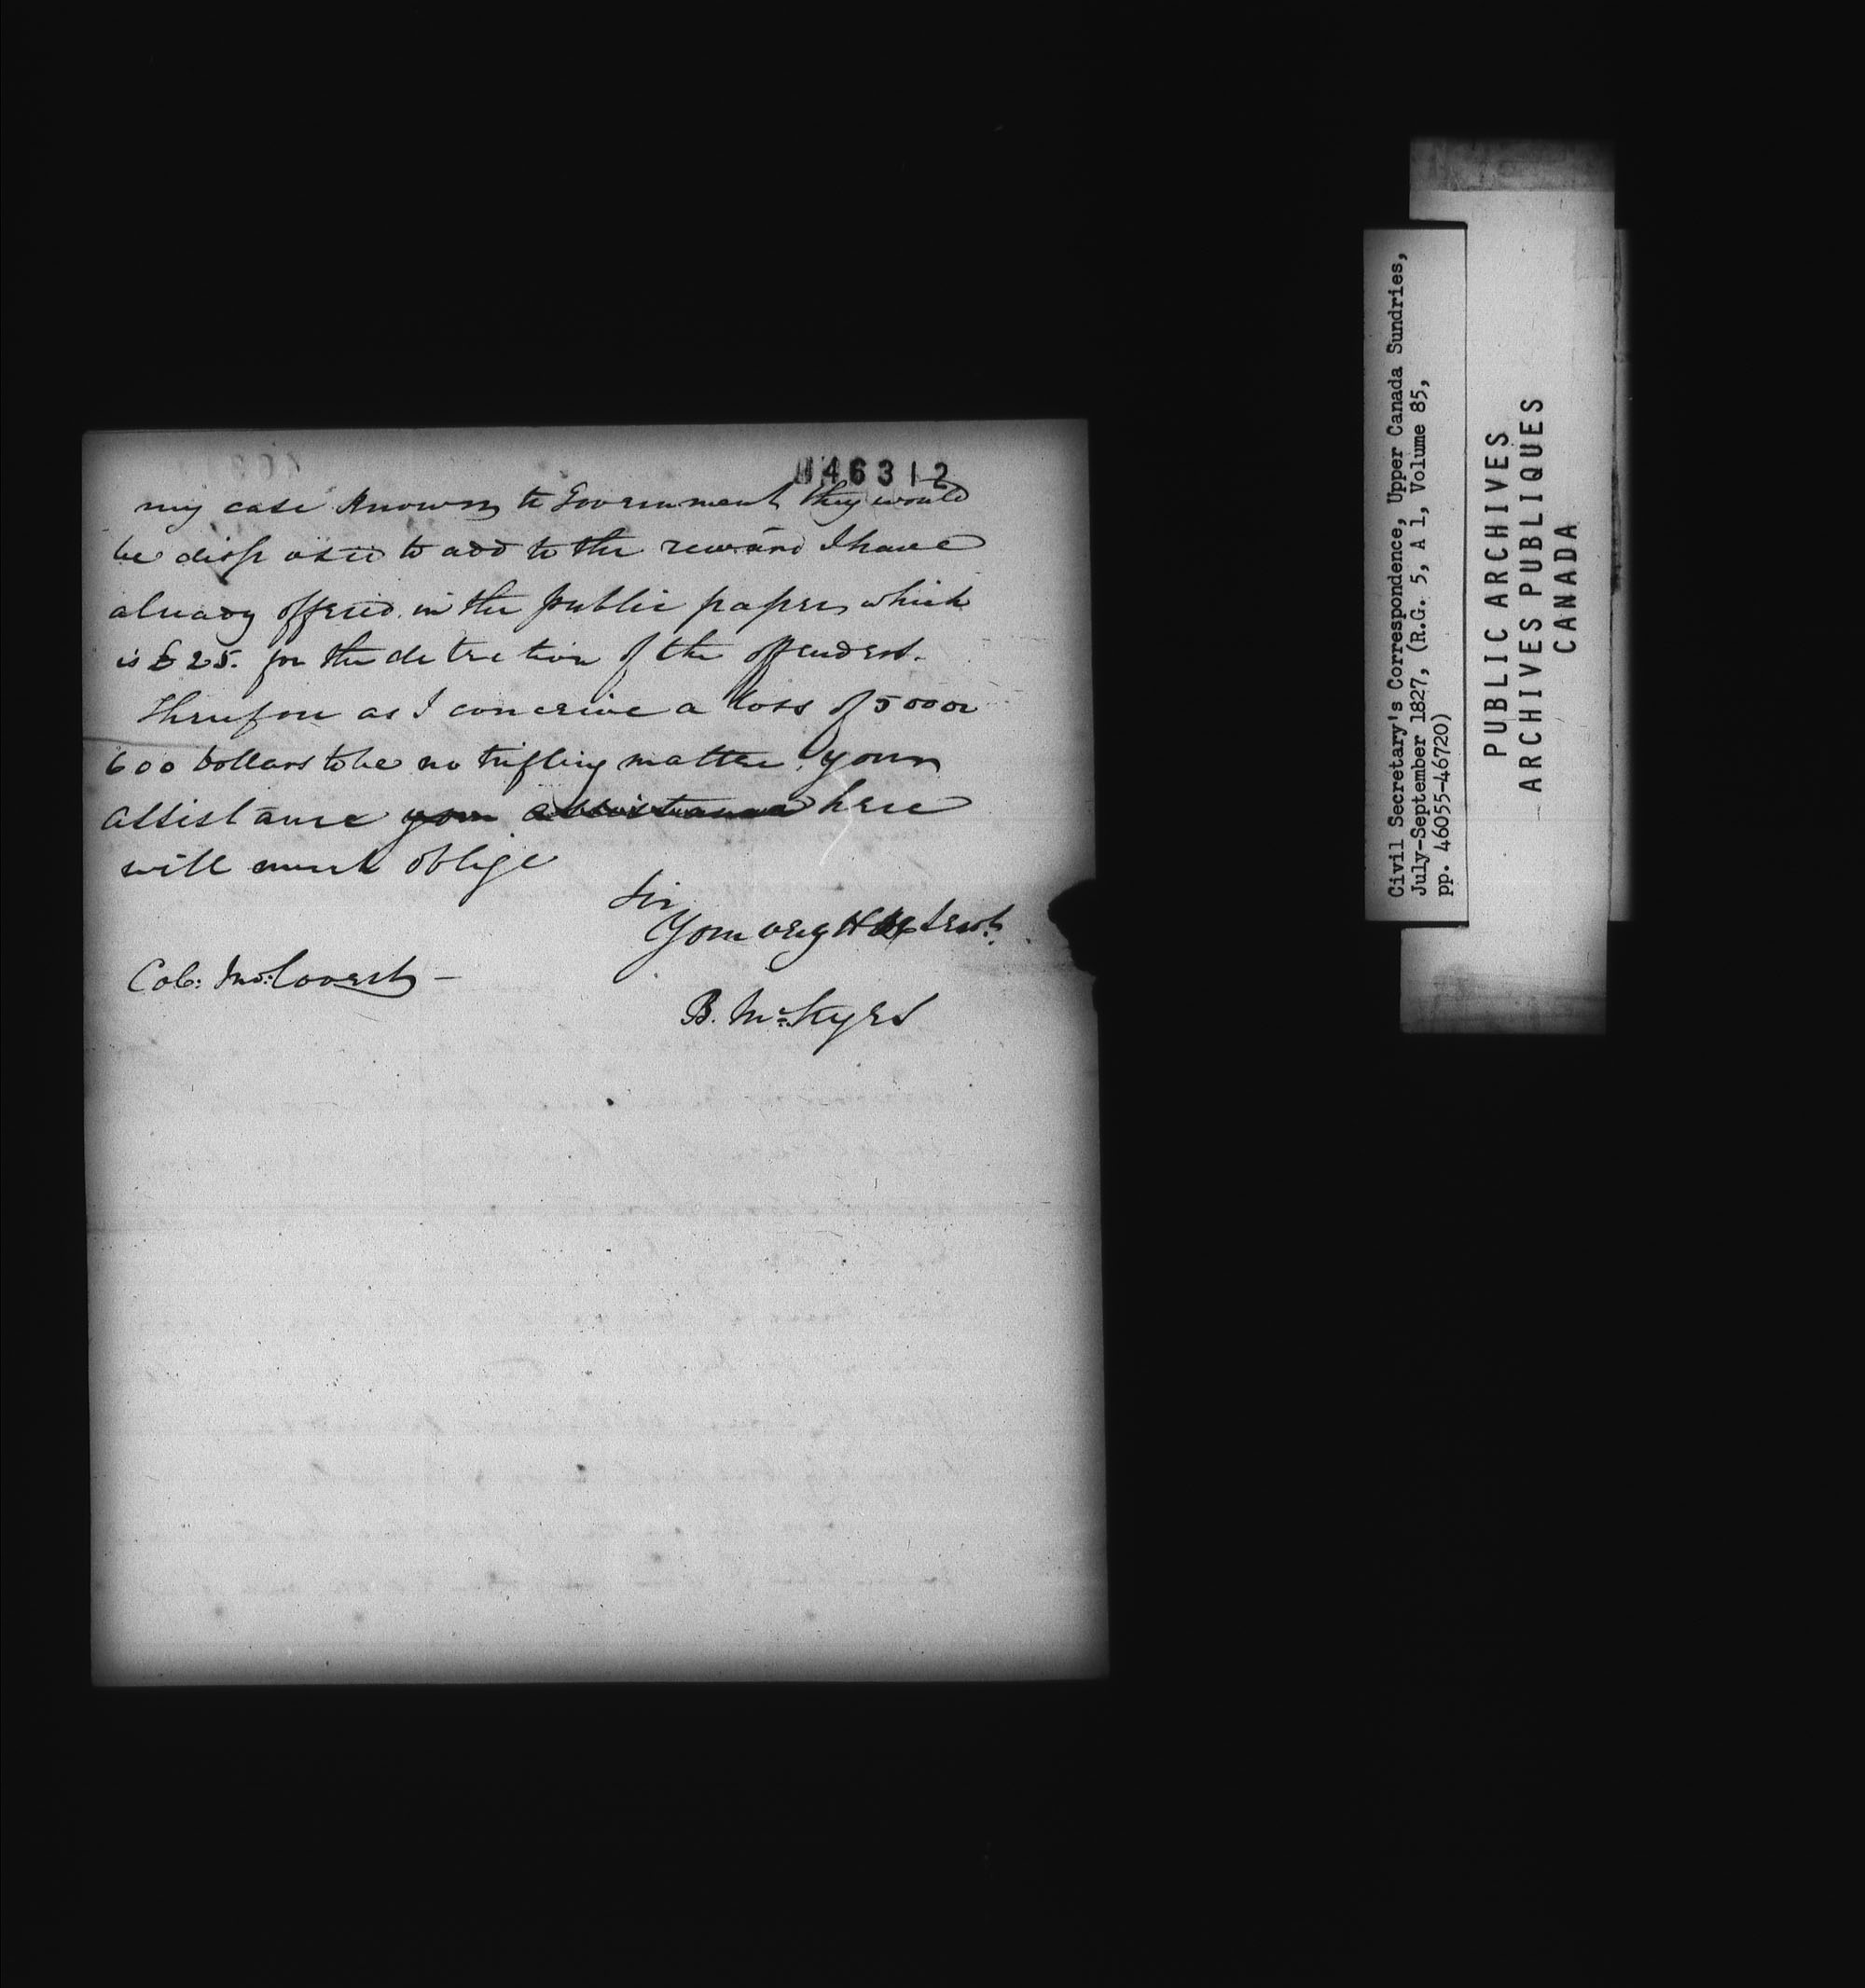 046312
my case known to Government they would
be disposed to add to the reward I have
already offered in the public papers which
is £25. for the detection of the offenders.
Therefore as I conceive a loss of 500 or
600 Dollars to be no trifling matter your
assistance your assistance here
will much oblige
Sir
Your very Hble Servt.
Col: Jno: Covert —
B. McKyes
Civil Secretary's Correspondence, Upper Canada Sundries,
July-September 1827, (R.G. 5, A 1, Volume 85,
pp. 46055-46720)
PUBLIC ARCHIVES
ARCHIVES PUBLIQUES
CANADA